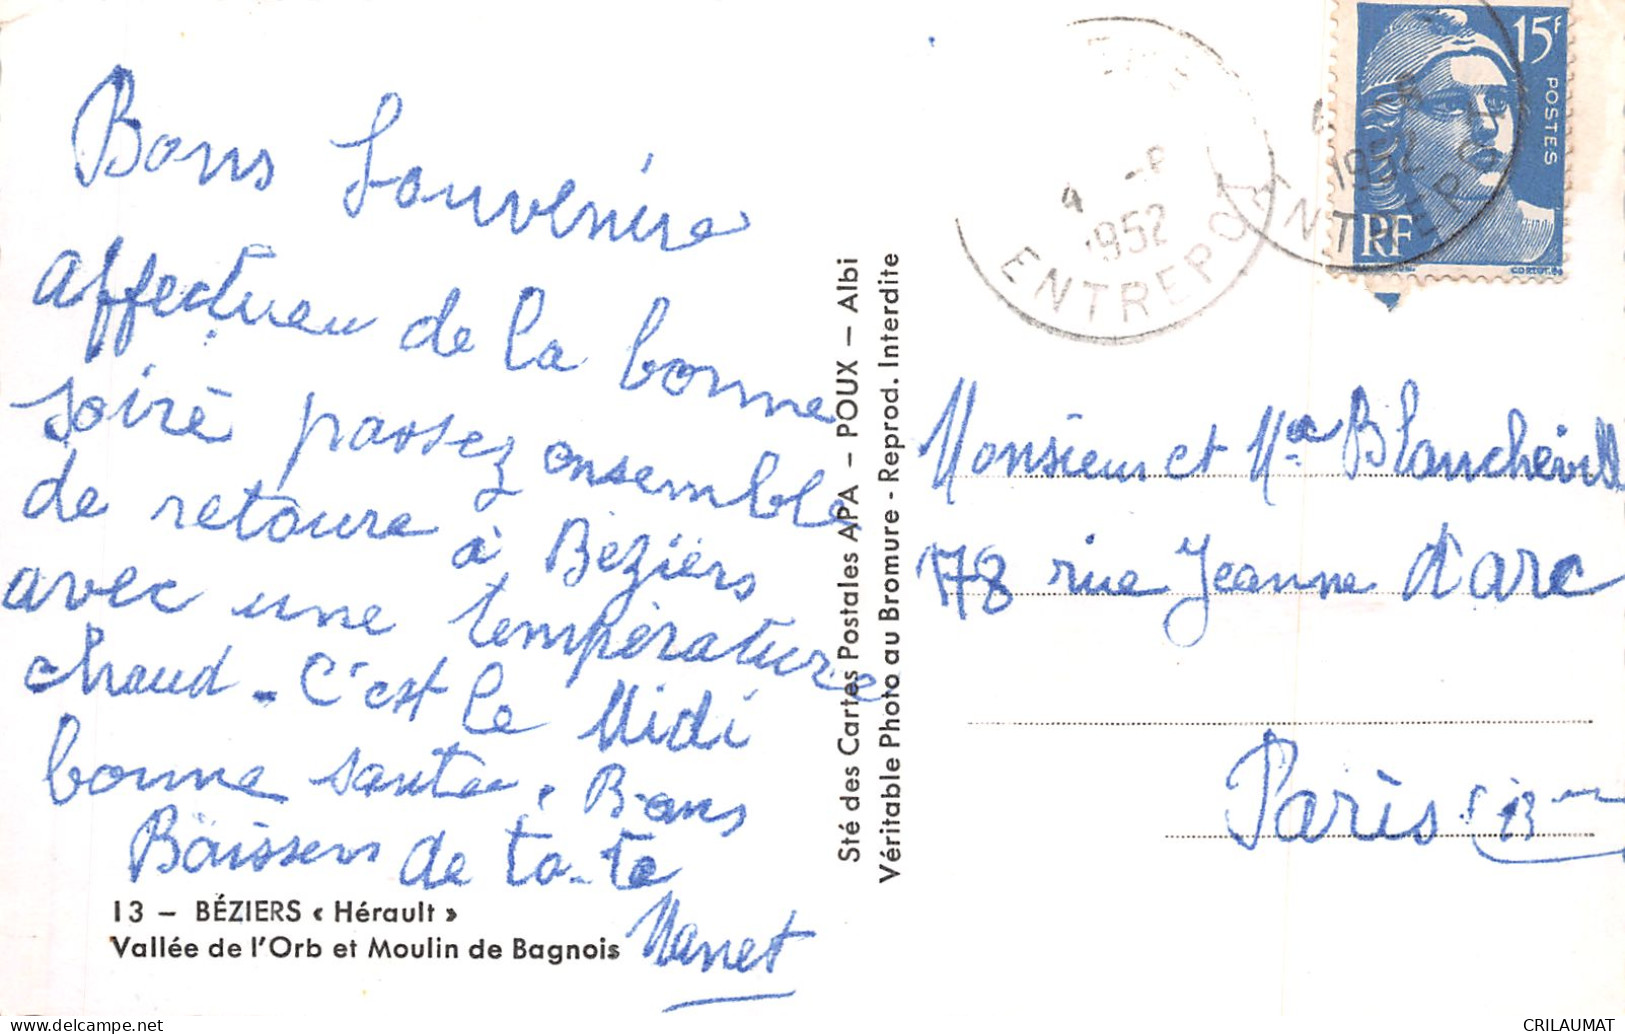 Bons Souvenire
affectueu de la bonne
soiré passez ensemble
de retoure à Béziers
avec une température
chaud - C'est le Midi
bonne santée. Bons
Baissers de ta-te
Nanet
13 – BÉZIERS « Hérault »
Vallée de l'Orb et Moulin de Bagnois
Sté des Cartes Postales APA – POUX – Albi
Véritable Photo au Bromure - Reprod. Interdite
1952
ENTREPOT
1952
ENTREPOT
15F
POSTES
RF
Monsieur et Ma Blancheville
178 rue Jeanne d'arc
Paris (13me
CRILAUMAT